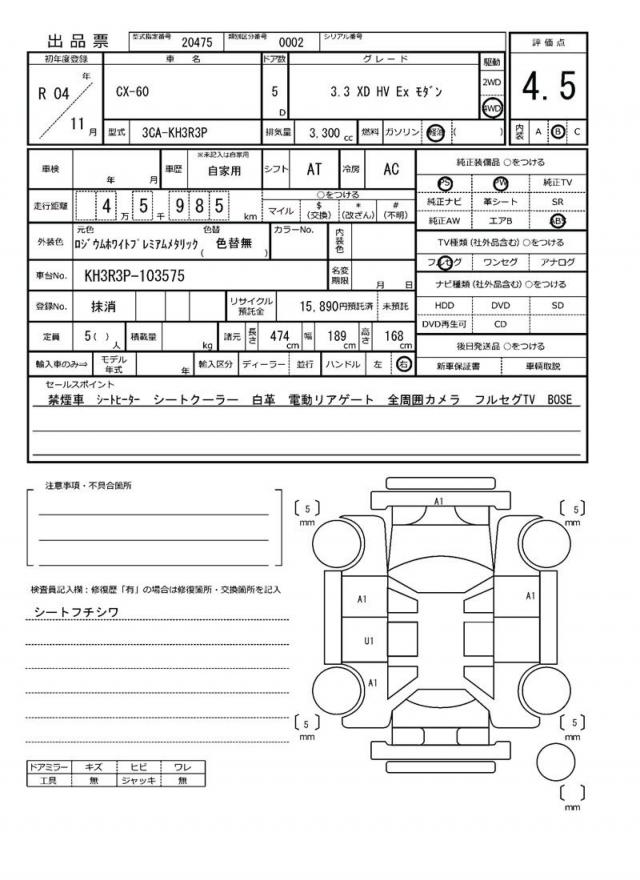 出品票 型式指定番号 20475 類別区分番号 0002 シリアル番号
評価点
初年度登録 車名 ドア数 グレード 駆動
R 04 年 11 月 CX-60 5 D 3.3 XD HV Ex モダン 2WD 4WD
4.5
型式 3CA-KH3R3P 排気量 3,300 cc 燃料 ガソリン 軽油 ( ) 内装 A B C
車検 年 月 車歴 ※未記入は自家用 自家用 シフト AT 冷房 AC
走行距離 4 万 5 千 9 8 5 km ○をつける マイル $ (交換) * (改ざん) # (不明)
外装色 元色 ロジウムホワイトプレミアムメタリック 色替 ( 色替無 ) カラーNo. 内装色
車台No. KH3R3P-103575 名変期限 月 日
登録No. 抹消 リサイクル預託金 15,890円預託済 未預託
定員 5 ( ) 人 積載量 kg 諸元 長さ 474 cm 幅 189 cm 高さ 168 cm
輸入車のみ⇒ モデル年式 年 輸入区分 ディーラー 並行 ハンドル 左 右
純正装備品 ○をつける
PS PW 純正TV
純正ナビ 革シート SR
純正AW エアB ABS
TV種類 (社外品含む) ○をつける
フルセグ ワンセグ アナログ
ナビ種類 (社外品含む) ○をつける
HDD DVD SD
DVD再生可 CD
後日発送品 ○をつける
新車保証書 車輌取説
セールスポイント
禁煙車 シートヒーター シートクーラー 白革 電動リアゲート 全周囲カメラ フルセグTV BOSE
注意事項・不具合箇所
検査員記入欄：修復歴「有」の場合は修復箇所・交換箇所を記入
シートフチシワ
ドアミラー キズ ヒビ ワレ
工具 無 ジャッキ 無
A1
[ 5 ] mm [ 5 ] mm
A1 A1
U1
A1
[ 5 ] mm [ 5 ] mm
[ ] mm